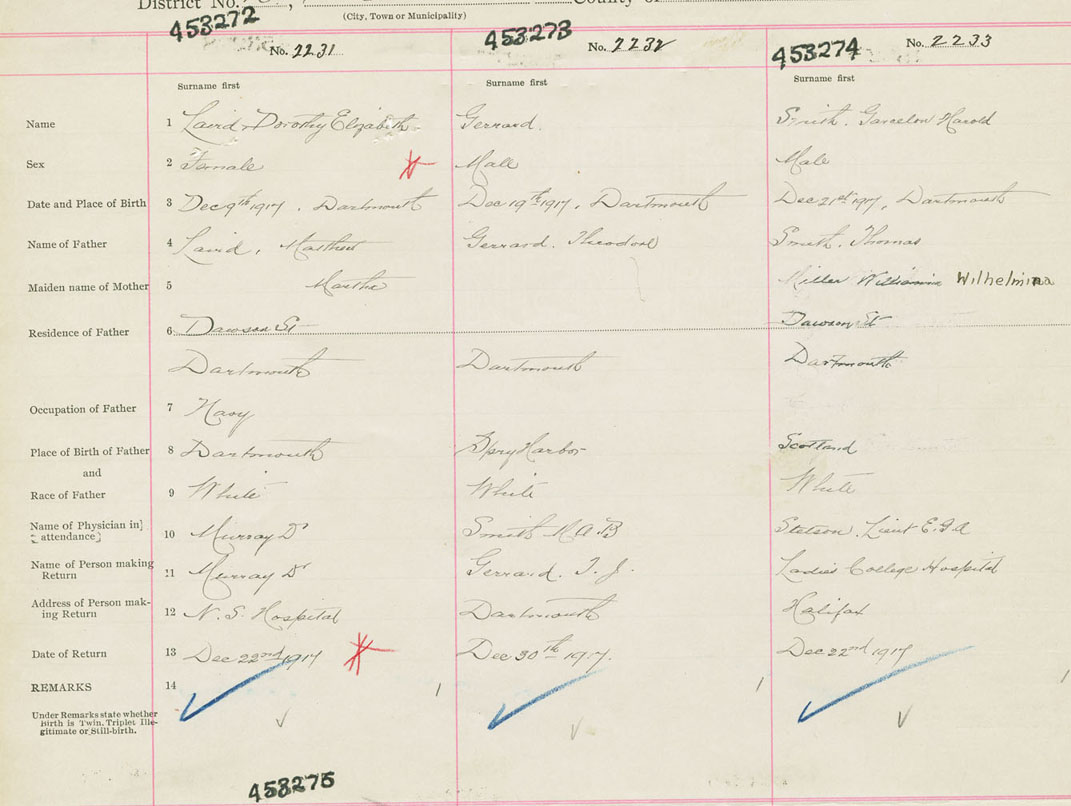 District No.
(City, Town or Municipality)
County of
453272 No. 2231
453273 No. 2232
453274 No. 2233
Surname first Surname first Surname first
Name 1 Laird, Dorothy Elizabeth Gerrard. Smith. Garcelon Harold
Sex 2 Female Male Male
Date and Place of Birth 3 Dec 9th 1917, Dartmouth Dec 19th 1917, Dartmouth Dec 21st 1917, Dartmouth
Name of Father 4 Laird, Matthew Gerrard. Theodore Smith. Thomas
Maiden name of Mother 5 Martha Miller Wilhelmina
Residence of Father 6 Dawson St Dawson St
Dartmouth Dartmouth Dartmouth
Occupation of Father 7 Navy
Place of Birth of Father 8 Dartmouth Spry Harbor Scotland
and
Race of Father 9 White White White
Name of Physician in} {attendance} 10 Murray Dr Smith M.A.B Stetson. Lieut E.G.A
Name of Person making Return 11 Murray Dr Gerrard. T. J. Ladies College Hospital
Address of Person mak- ing Return 12 N. S. Hospital Dartmouth Halifax
Date of Return 13 Dec 22nd 1917 Dec 30th 1917. Dec 22nd 1917
REMARKS 14 1 1 1
Under Remarks state whether
Birth is Twin, Triplet Ille-
gitimate or Still-birth.
453275